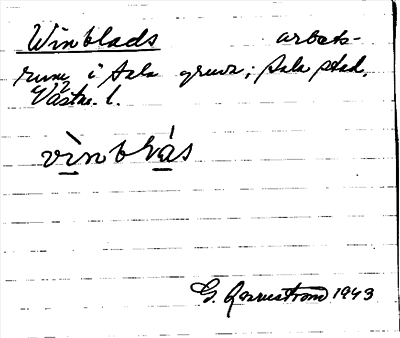 Winblads arbets-
rum i Sala gruva; Sala stad,
Västm. l.
vìnblás
G. 1943